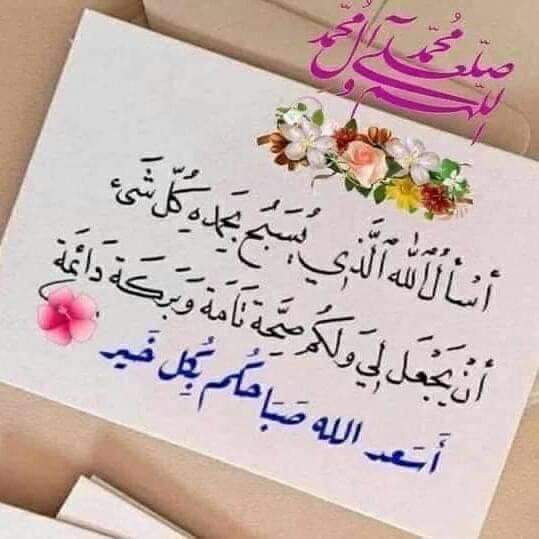 اللهم صل على محمد وآل محمد
أسْألُ اللهَ الَّذِي يُسَبحُ بِحَمْدِهِ كُلّ شَيْء
أنْ يَجْعَل لِي وَلَكُم صِحَّة تَامَة وَبَرَكَة دَائِمَة
أَسَعد الله صَبَاحكُم بِكُل خَير